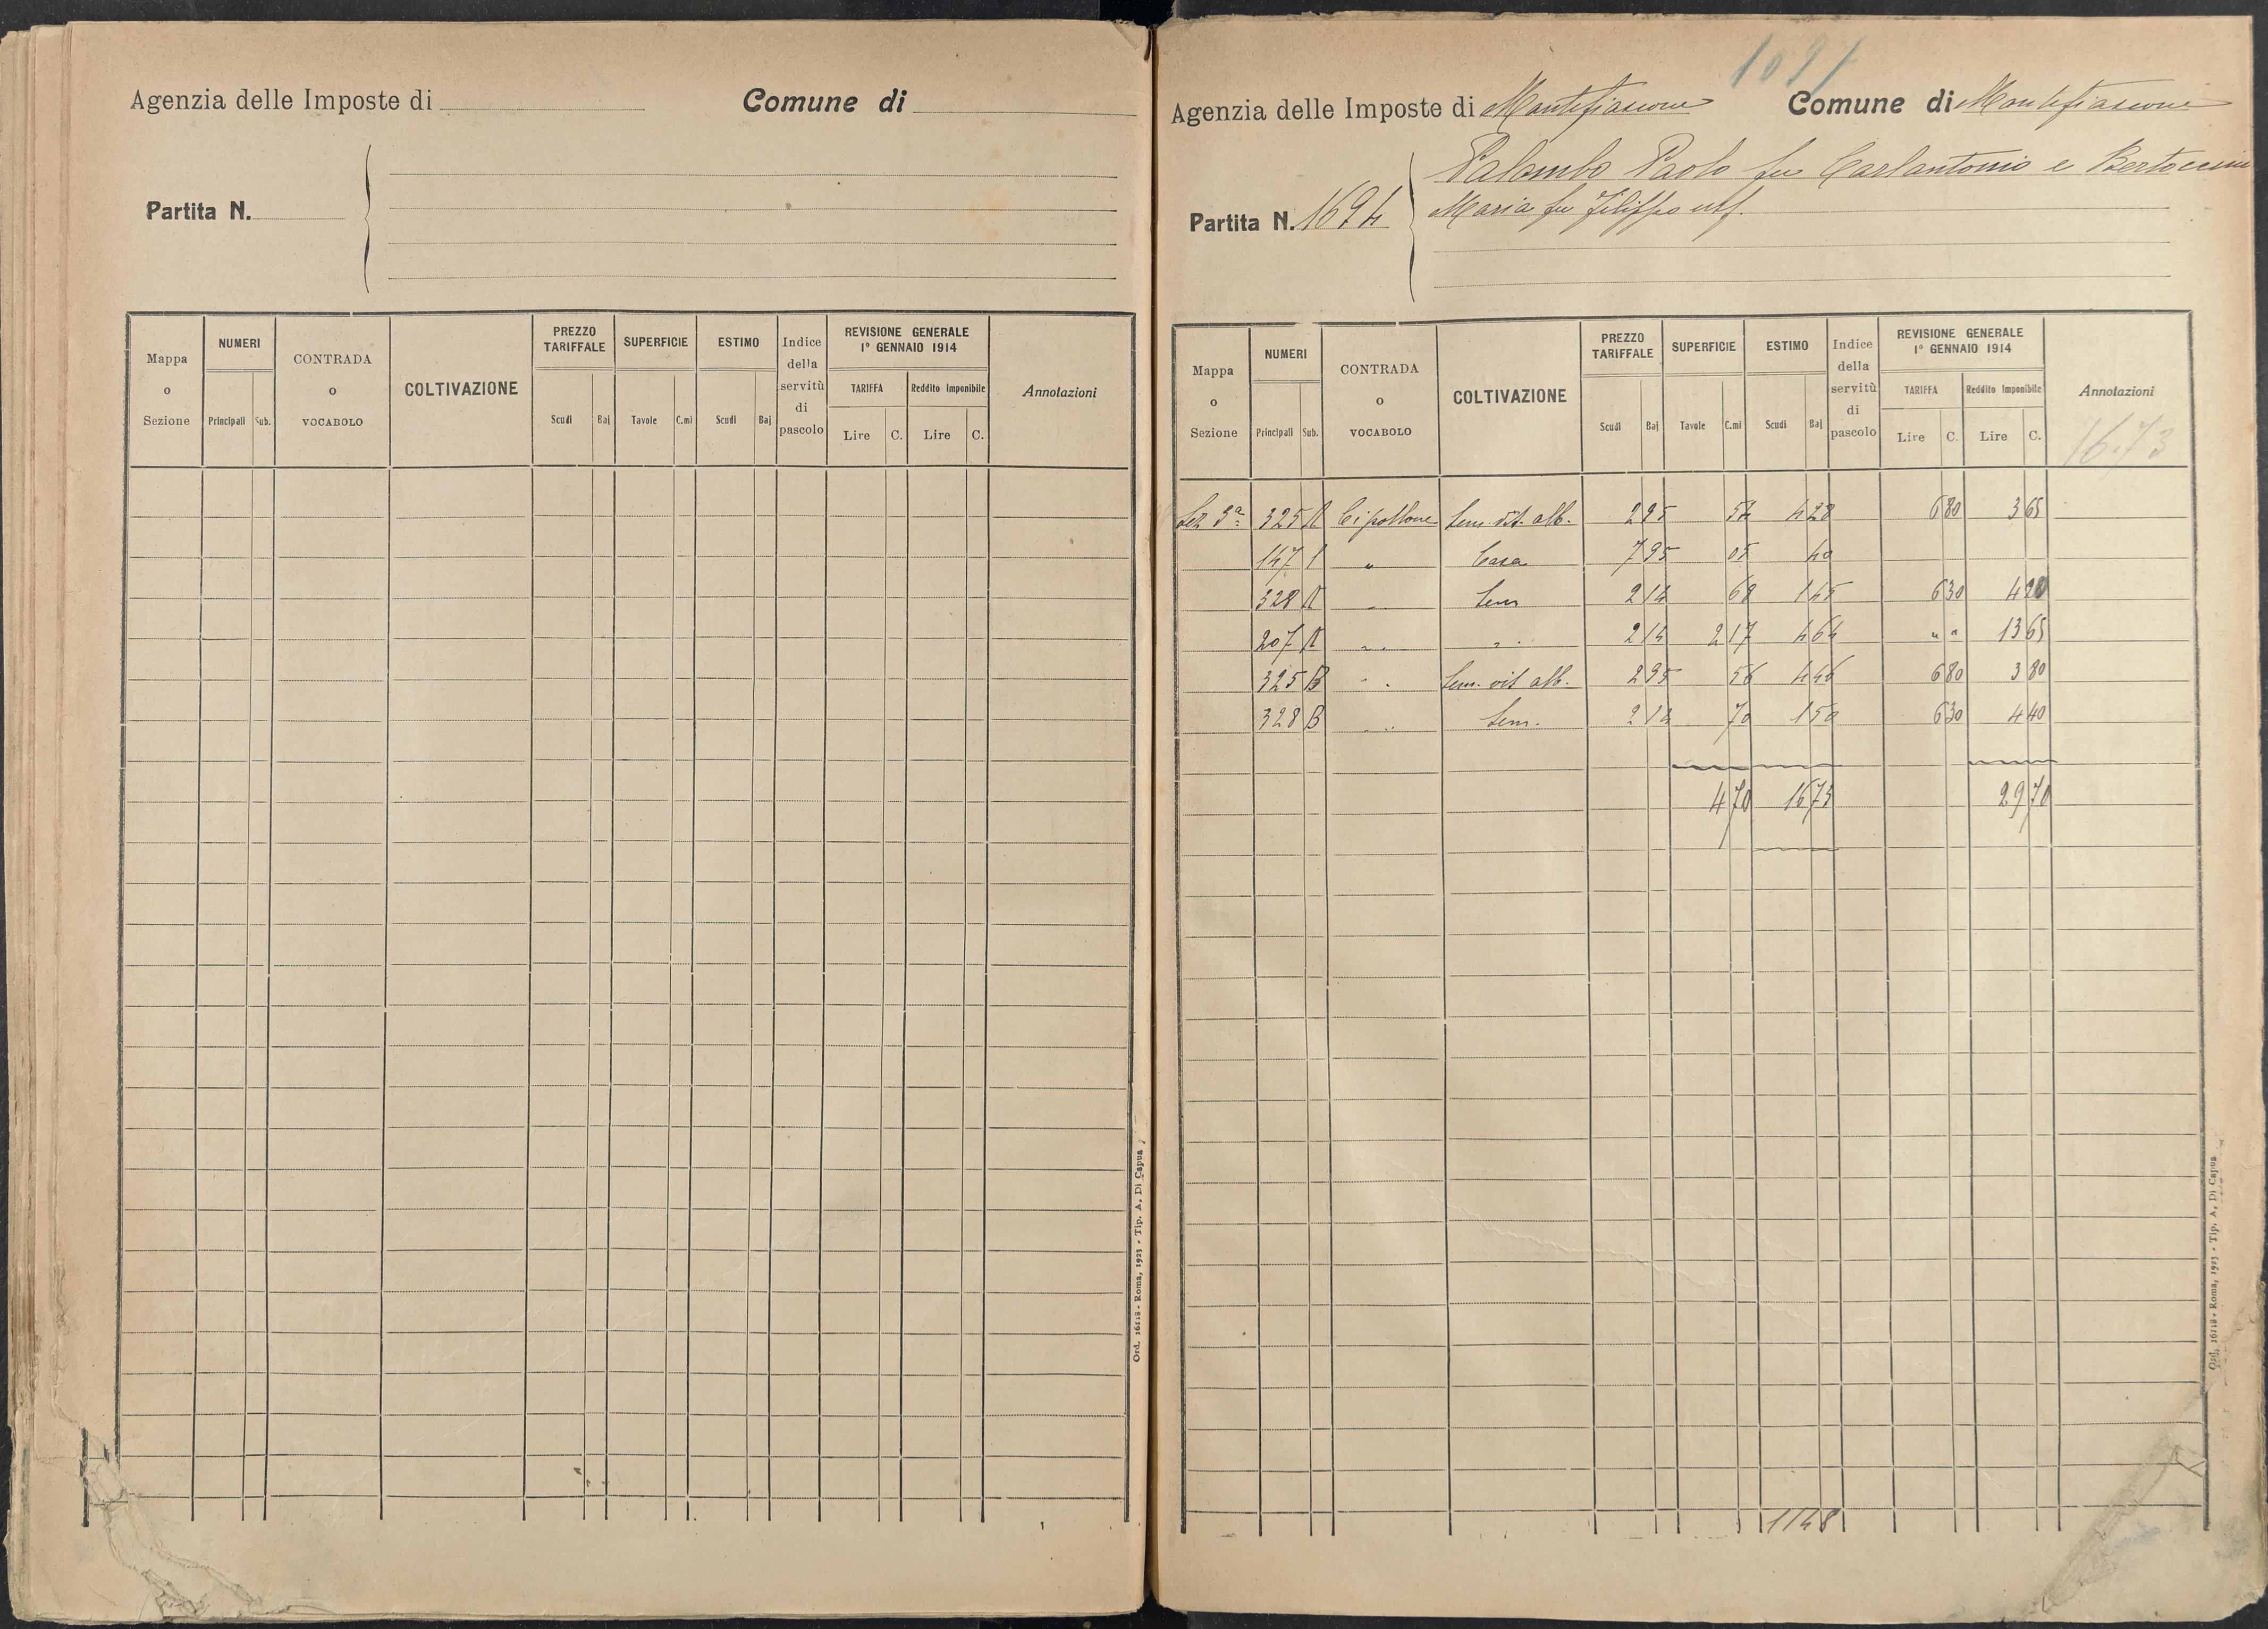 Agenzia delle Imposte di
Comune di
Partita N.
Mappa o Sezione
NUMERI
Principali Sub.
CONTRADA o VOCABOLO
COLTIVAZIONE
PREZZO TARIFFALE
Scudi Baj
SUPERFICIE
Tavole C.mi
ESTIMO
Scudi Baj
Indice della servitù di pascolo
REVISIONE GENERALE
1° GENNAIO 1914
TARIFFA
Lire C.
Reddito Imponibile
Lire C.
Annotazioni
Ord. 16118 - Roma, 1923 - Tip. A. Di Capua
Agenzia delle Imposte di Montefiascone
Comune di Montefiascone
Partita N. 1694
Palombo Paolo fu Carlantonio e Bertoccini
Maria fu Filippo utf.
Mappa o Sezione
NUMERI
Principali Sub.
CONTRADA o VOCABOLO
COLTIVAZIONE
PREZZO TARIFFALE
Scudi Baj
SUPERFICIE
Tavole C.mi
ESTIMO
Scudi Baj
Indice della servitù di pascolo
REVISIONE GENERALE
1° GENNAIO 1914
TARIFFA
Lire C.
Reddito Imponibile
Lire C.
Annotazioni
16.73
Sez 3ª 325 A Cipollone Sem. vit. alb. 2 95 54 4 28 6 80 3 65
147 1 " Casa 7 95 05 40
328 A " Sem 2 14 68 1 45 6 30 4 20
207 A " " 2 14 2 17 4 64 " " 13 65
325 B " Sem. vit alb. 2 95 56 4 46 6 80 3 80
328 B " Sem. 2 14 70 1 50 6 30 4 40
4 70 16 73 29 70
1148
Ord. 16118 - Roma, 1923 - Tip. A. Di Capua